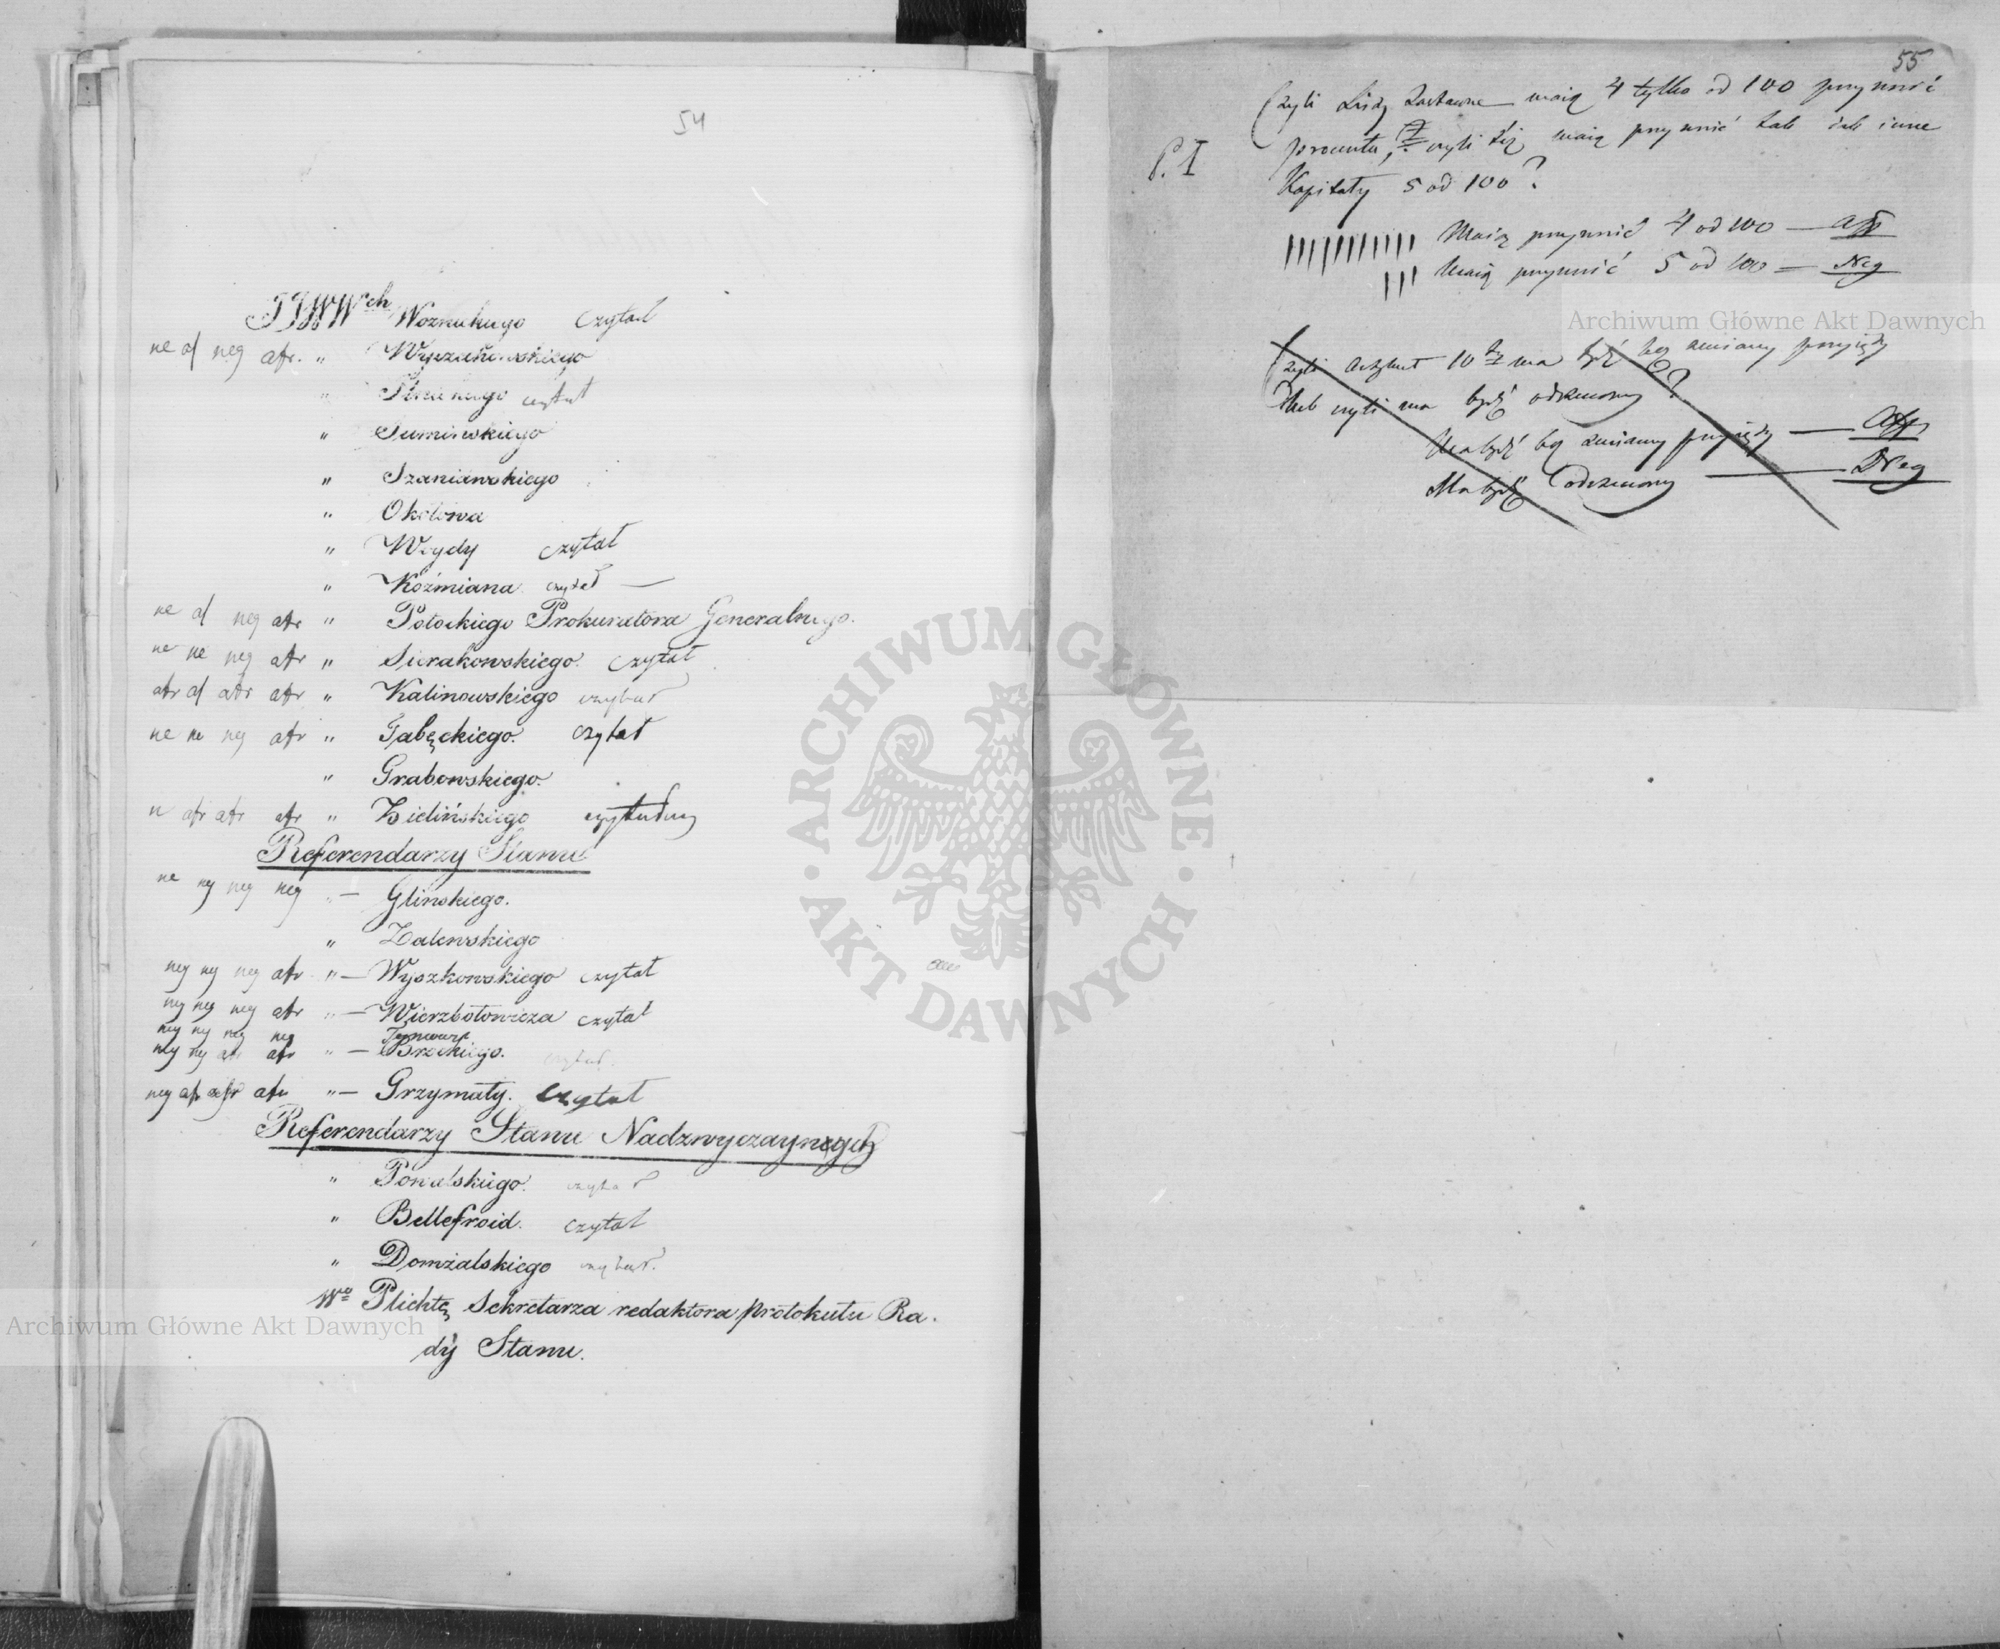 54
JJWWch Woznickiego czytał
ne af neg afr. " Wyczałkowskiego
" czytał
" Sumińskiego
" Szaniawskiego
" Okołowa
" Woydy czytał
" Koźmiana czytał —
ne af neg afr " Potockiego Prokuratora Generalnego.
ne ne neg afr " Sierakowskiego. czytał
afr af afr afr " Kalinowskiego czytał
ne ne neg afr " Gąbęckiego. czytał
" Grabowskiego.
n afr afr afr " Zielińskiego
Referendarzy Stanu
ne neg neg neg " — Glińskiego.
" Zalewskiego
neg neg neg afr " — Wyszkowskiego czytał
neg neg neg afr " — Wierzbołowicza czytał
neg neg neg neg
neg neg afr afr " — Brockiego. czytał
neg af afr afr " — Grzymały. czytał
Referendarzy Stanu Nadzwyczaynych
" Powalskiego. czytał
" Bellefroid. czytał
" Domżalskiego czytał
Wo Plichtę Sekretarza redaktora protokułu Ra.
dy Stanu.
55
Czyli Listy Zastawne maią 4 tylko od 100 przynosić
P. I
procentu, czyli też maią przynosić tak iak inne
Kapitały 5 od 100?
Maią przynosić 4 od 100 — Aff
Maią przynosić 5 od 100 — Neg
Czyli Artykuł 10ty ma być bez zmiany przyięty
lub czyli ma być odrzucony?
Ma być bez zmiany przyięty — Aff
Ma być odrzucony — Neg
ARCHIWUM GŁÓWNE · AKT DAWNYCH ·
Archiwum Główne Akt Dawnych
Archiwum Główne Akt Dawnych